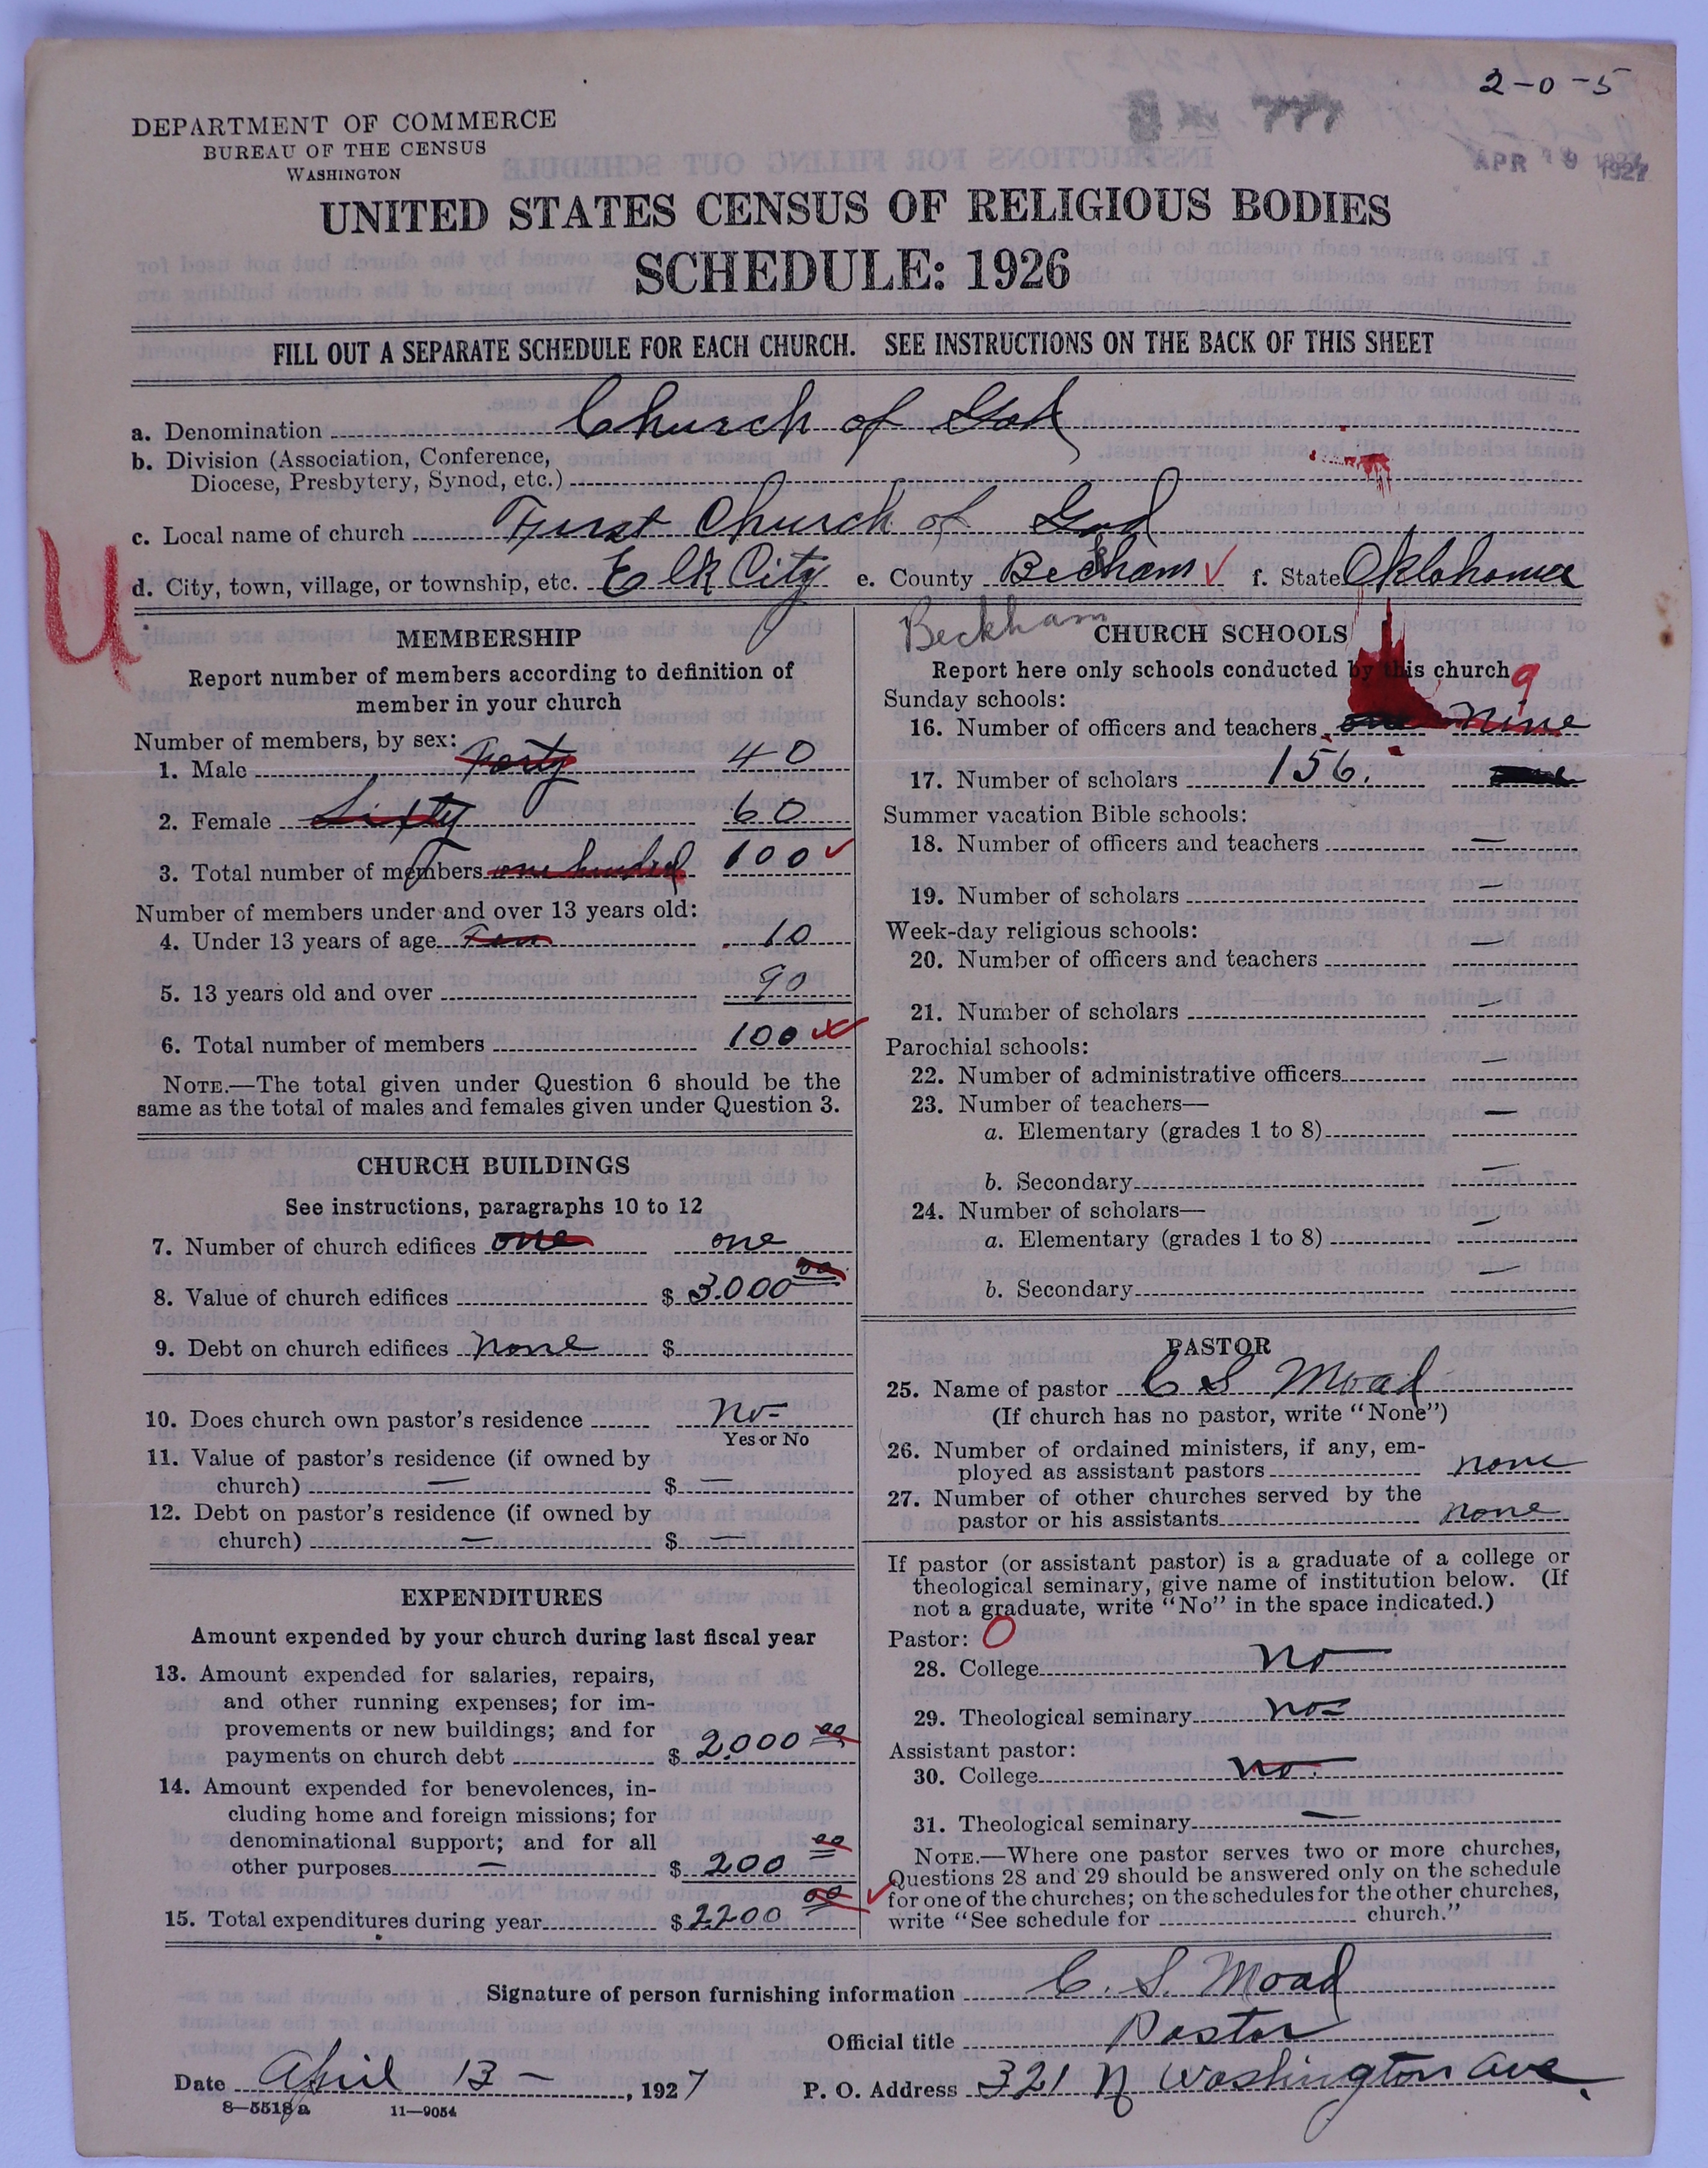 2-0-5
APR 19 1927
DEPARTMENT OF COMMERCE
BUREAU OF THE CENSUS
WASHINGTON
UNITED STATES CENSUS OF RELIGIOUS BODIES
SCHEDULE: 1926
FILL OUT A SEPARATE SCHEDULE FOR EACH CHURCH. SEE INSTRUCTIONS ON THE BACK OF THIS SHEET
a. Denomination Church of God
b. Division (Association, Conference,
Diocese, Presbytery, Synod, etc.)
c. Local name of church First Church of God
d. City, town, village, or township, etc. Elk City e. County Becham f. State Oklahoma
U
Beckham
MEMBERSHIP
Report number of members according to definition of
member in your church
Number of members, by sex:
1. Male Forty 40
2. Female Sixty 60
3. Total number of members one hundred 100
Number of members under and over 13 years old:
4. Under 13 years of age Ten 10
5. 13 years old and over 90
6. Total number of members 100
NOTE.—The total given under Question 6 should be the
same as the total of males and females given under Question 3.
CHURCH BUILDINGS
See instructions, paragraphs 10 to 12
7. Number of church edifices one one
8. Value of church edifices $ 3.000 00
9. Debt on church edifices none $
10. Does church own pastor's residence no
Yes or No
11. Value of pastor's residence (if owned by
church) — $ —
12. Debt on pastor's residence (if owned by
church) — $ —
EXPENDITURES
Amount expended by your church during last fiscal year
13. Amount expended for salaries, repairs,
and other running expenses; for im-
provements or new buildings; and for
payments on church debt $ 2.000 00
14. Amount expended for benevolences, in-
cluding home and foreign missions; for
denominational support; and for all
other purposes — $ 200 00
15. Total expenditures during year $ 2200 00
CHURCH SCHOOLS
Report here only schools conducted by this church
9
Sunday schools:
16. Number of officers and teachers one nine
17. Number of scholars 156.
Summer vacation Bible schools:
18. Number of officers and teachers —
19. Number of scholars —
Week-day religious schools:
20. Number of officers and teachers —
21. Number of scholars —
Parochial schools:
22. Number of administrative officers —
23. Number of teachers—
a. Elementary (grades 1 to 8) —
b. Secondary —
24. Number of scholars—
a. Elementary (grades 1 to 8) —
b. Secondary —
PASTOR
25. Name of pastor C S Moad
(If church has no pastor, write "None")
26. Number of ordained ministers, if any, em-
ployed as assistant pastors none
27. Number of other churches served by the
pastor or his assistants none
If pastor (or assistant pastor) is a graduate of a college or
theological seminary, give name of institution below. (If
not a graduate, write "No" in the space indicated.)
Pastor: 0
28. College no
29. Theological seminary no
Assistant pastor:
30. College no.
31. Theological seminary —
NOTE.—Where one pastor serves two or more churches,
Questions 28 and 29 should be answered only on the schedule
for one of the churches; on the schedules for the other churches,
write "See schedule for church."
Signature of person furnishing information C. S. Moad
Official title Pastor
Date April 13 — , 1927 P. O. Address 321 N Washington Ave.
8—5518a 11—9054